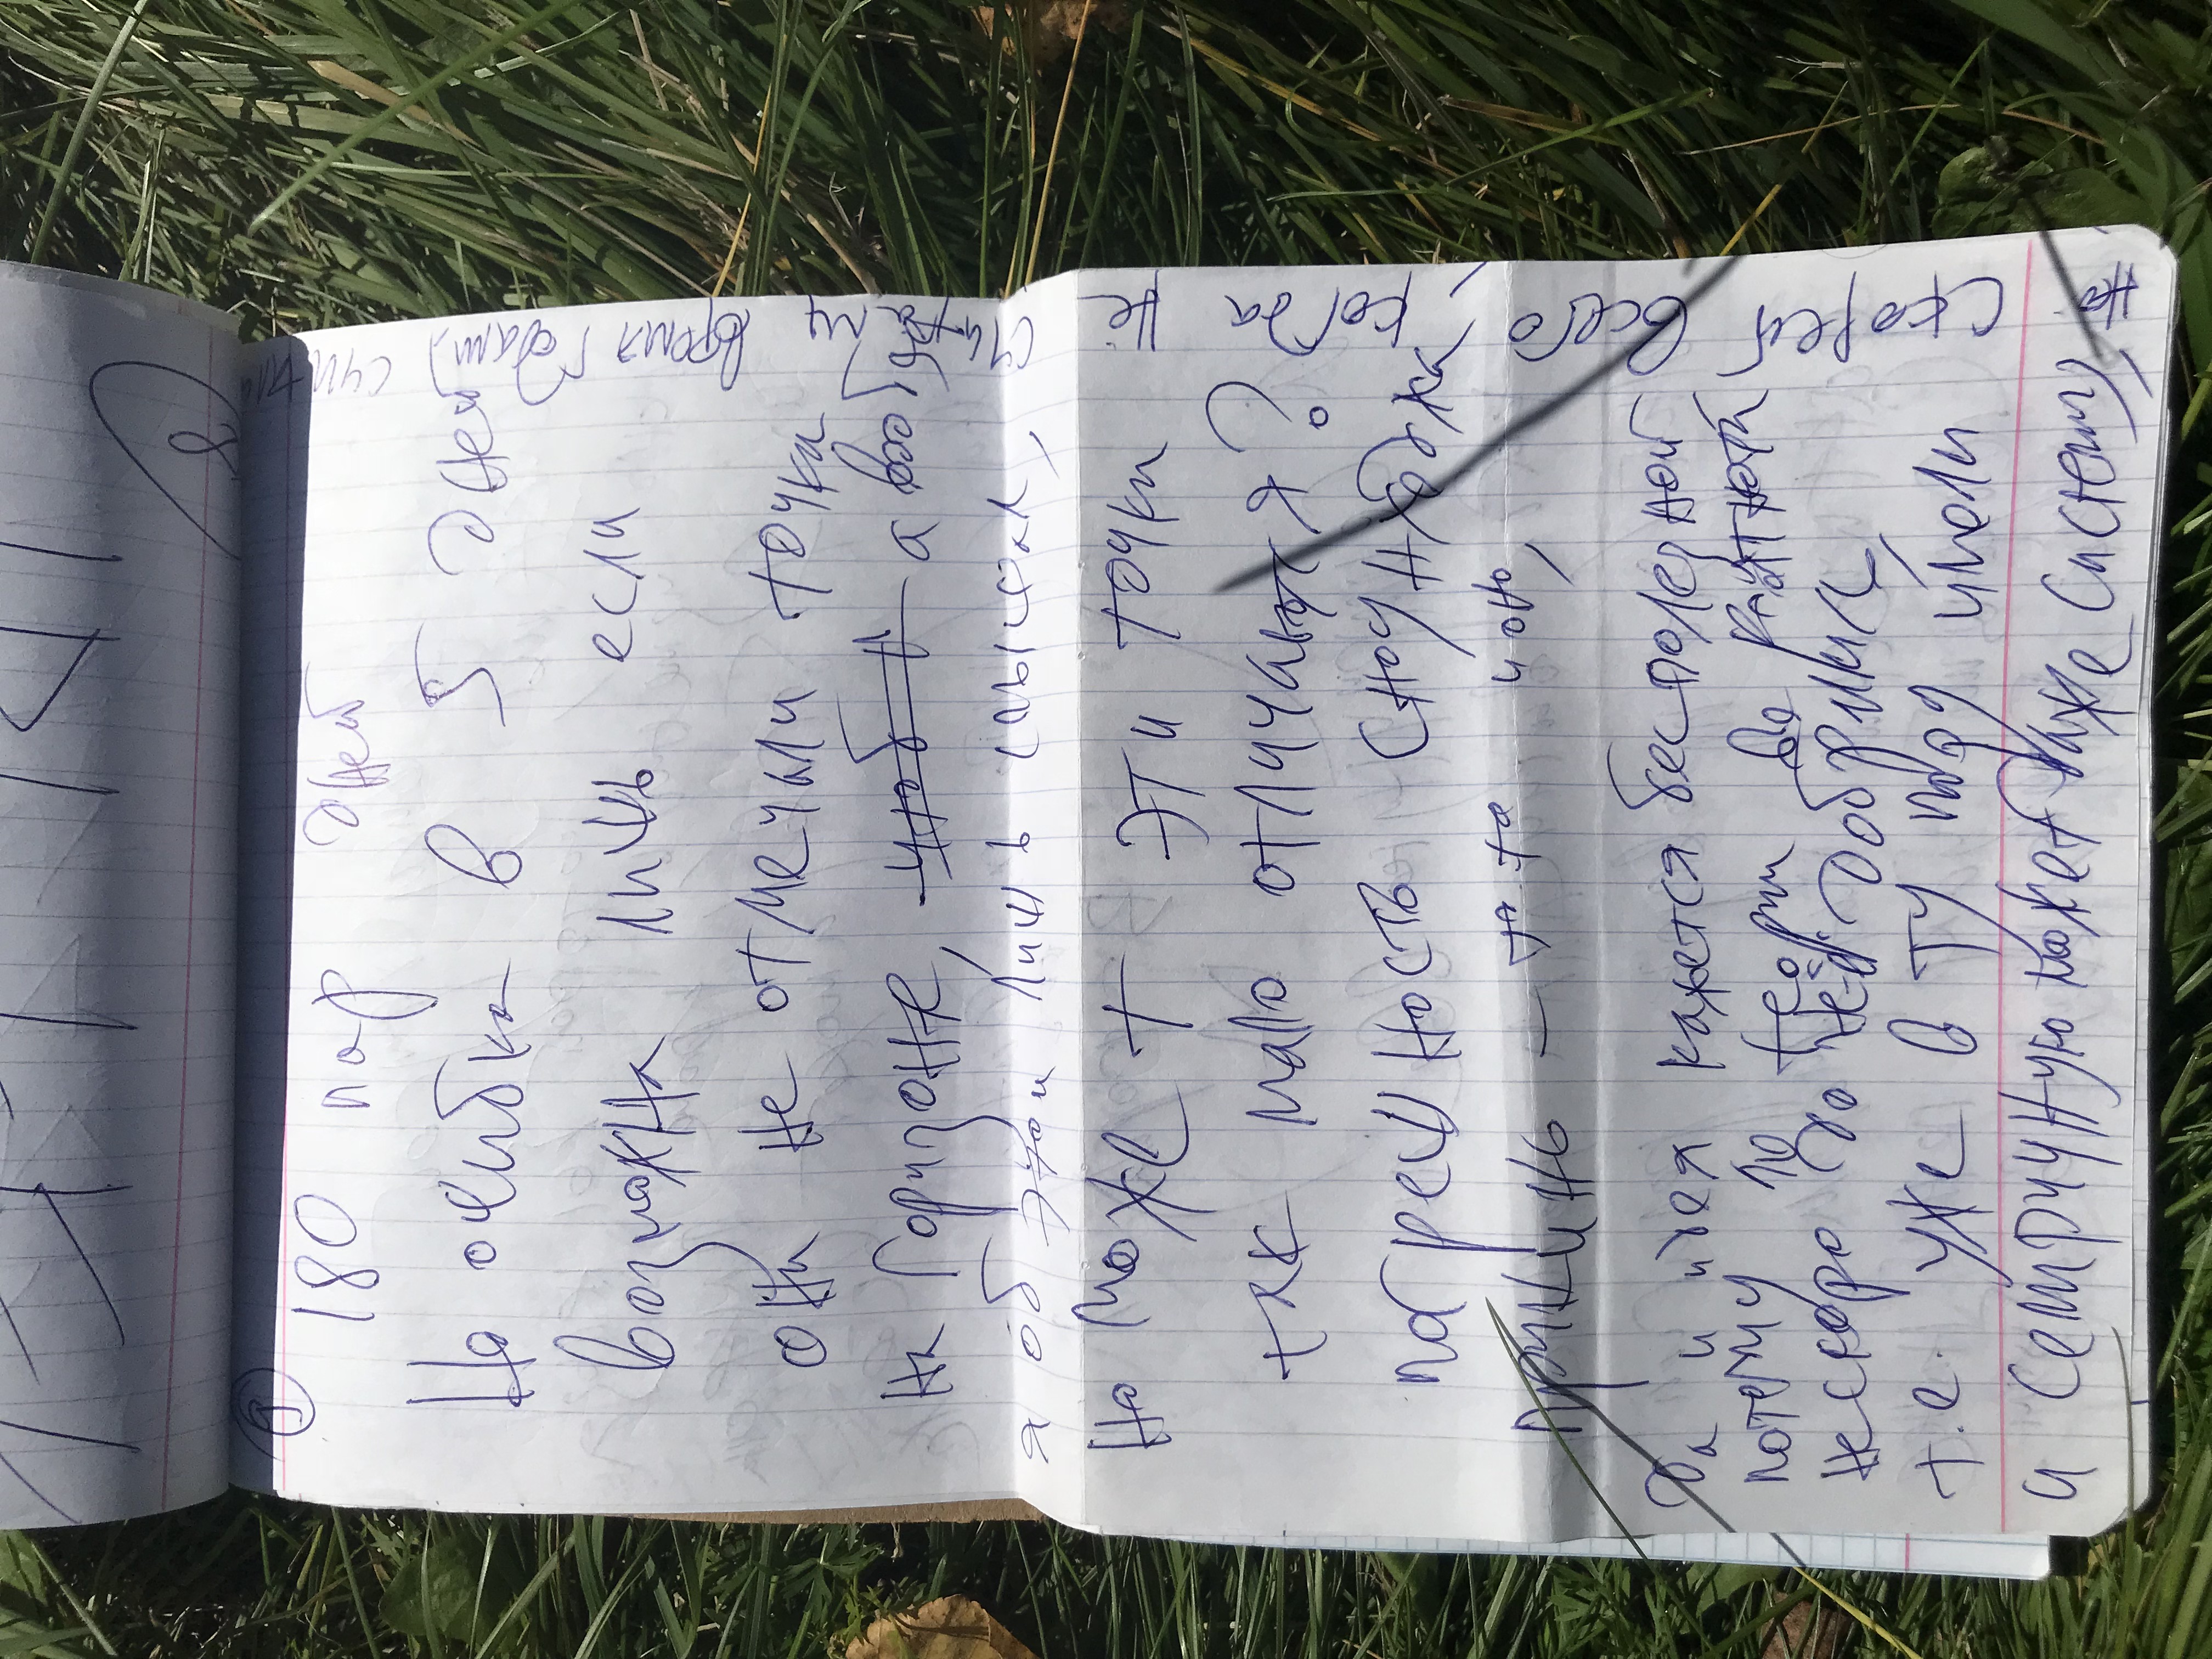 ①
180 пар дней
Но ошибка в 5 дней
возможна лишь если
они не отмечали точки
на горизонте, чтоб а вооб
я об этом лишь слышал,
но может эти точки
так мало отличаются?
погрешность Сноунходжа
прикинь – та та и оно,
Да и идея кажется бесполезной
потому по теории
не скоро до неё добрались,
т.е. уже в ту пору имели
и семричную может даже систему,
но скорей всего, когда не считали время годами,
я